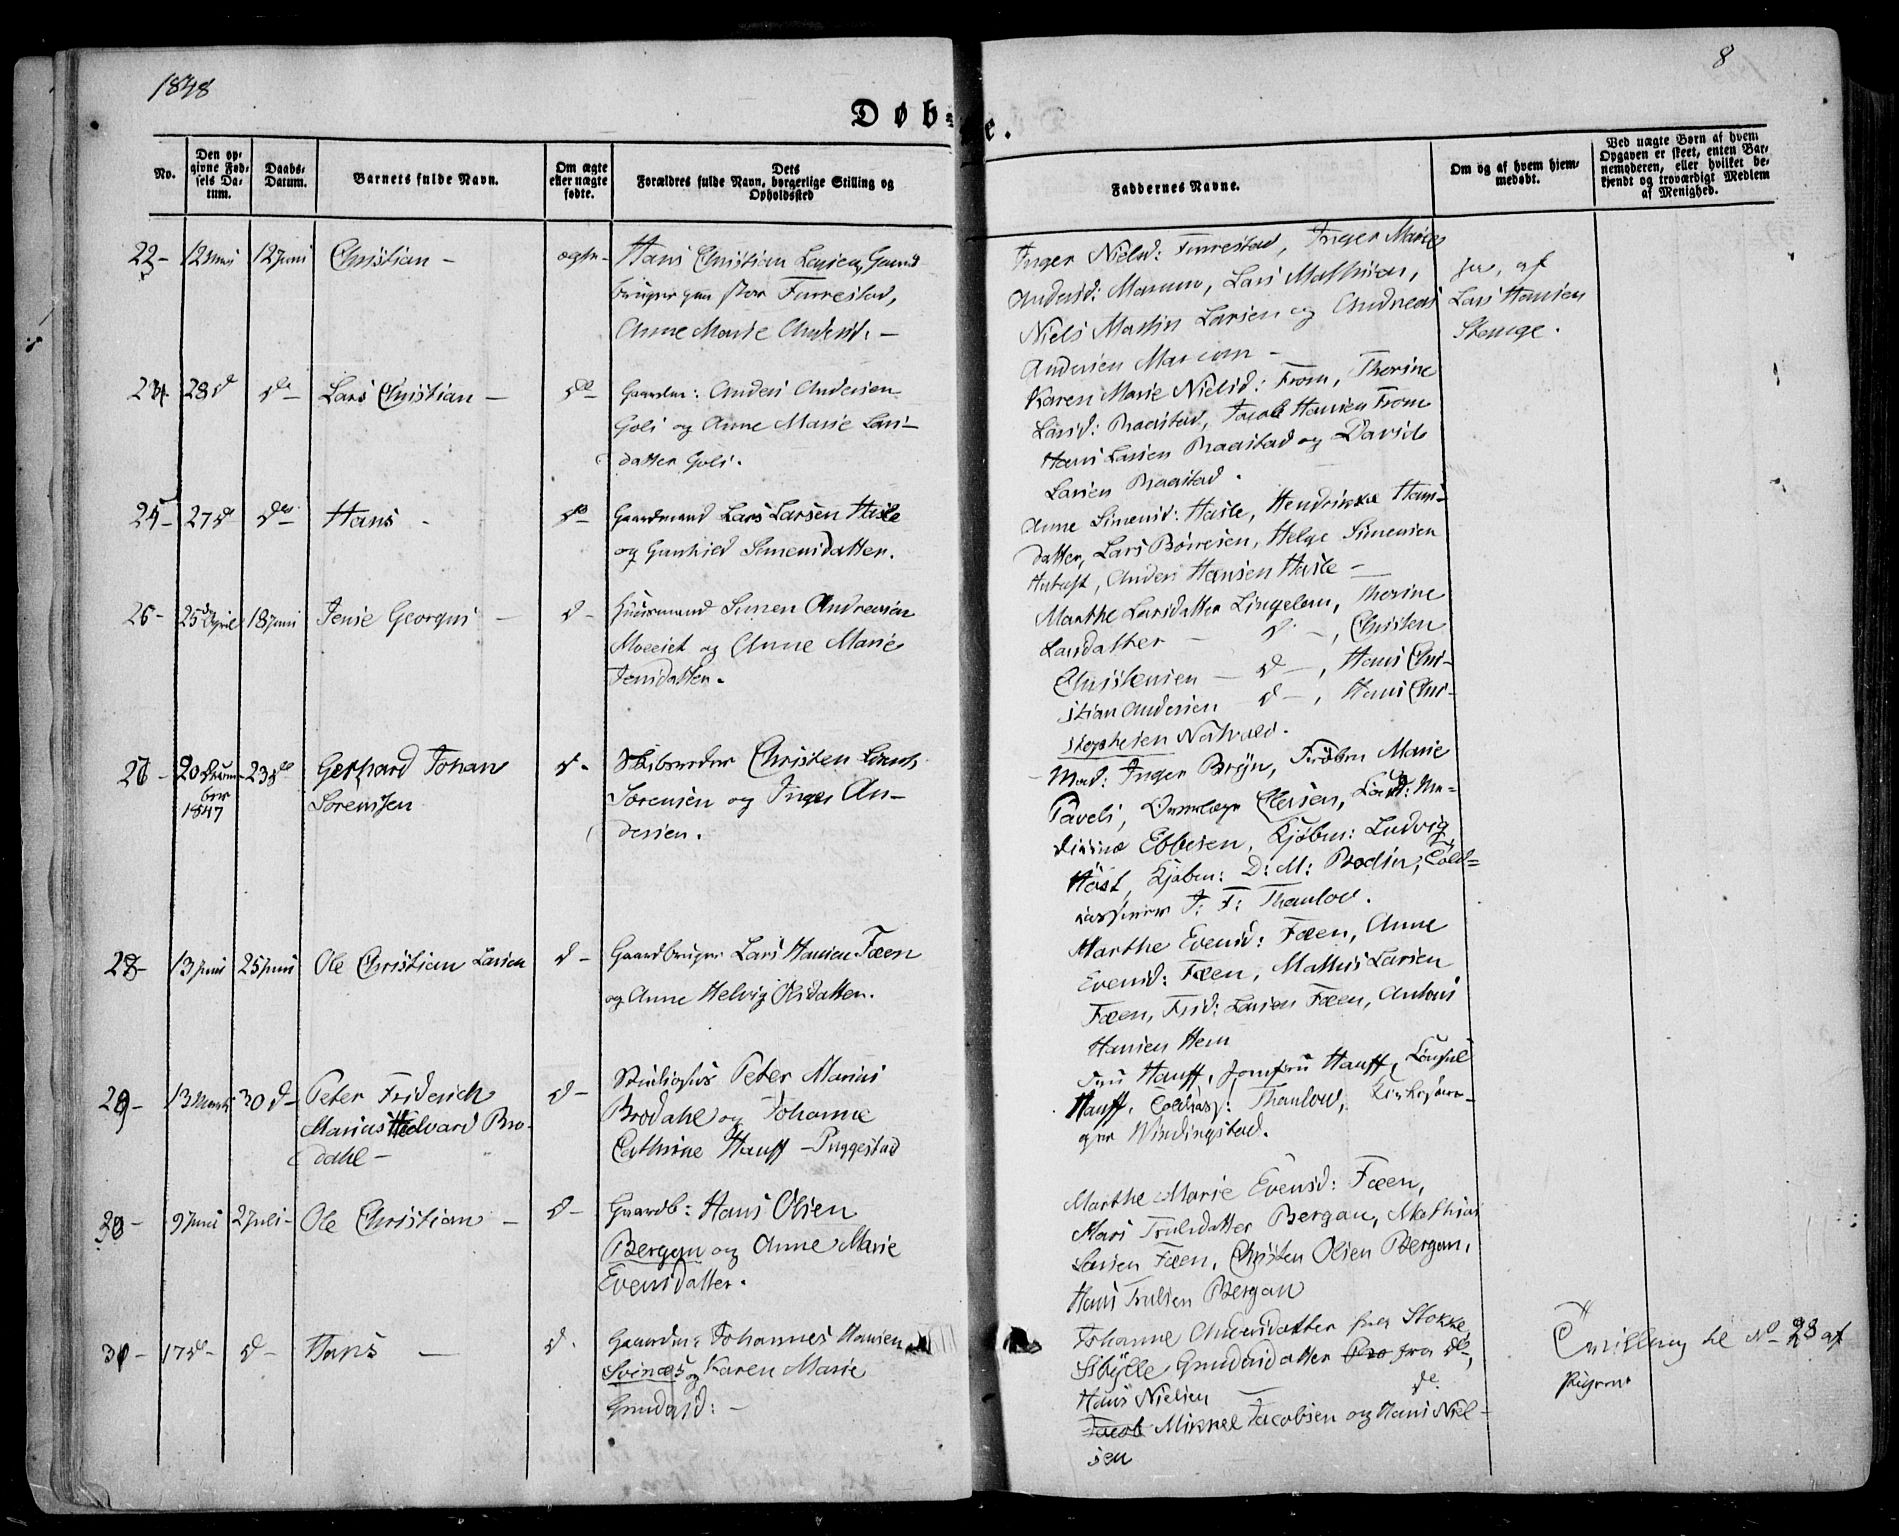 1848
8
Døbte.
No.
Den op-
givne Fød-
sels Da-
tum.
Daabs-
Datum.
Barnets fulde Navn.
Om ægte
eller uægte
fødte.
Dets
Forældres fulde Navn, borgerlige Stilling og
Opholdssted
Faddernes Navne.
Om og af hvem hjem-
medøbt.
Ved uægte Børn af hvem
Opgaven er skeet, enten Bar-
nemoderen, eller hvilket be-
kjendt og troværdigt Medlem
af Menighed.
22- 12 Juni Christian - ægte-
Hans Christian Larsen, Gaard
bruger paa stor Furrestad,
Anne Marie Andersd. -
Inger Nielsd: Furrestad, Inger Marie
Andersd: Marum, Lars Mathisen,
Niels Martin Larsen og Andreas
Andersen Marum -
ja, af
Lars Hansen
Stenge.
28 d d Lars Christian - do
Gaardm: Anders Andersen
Goli og Anne Marie Lars-
datter Goli.
Karen Marie Nielsd: From, Thorine
Larsd: Raastad, Jacob Hansen From
Hans Larsen Raastad og David
Larsen Raastad.
27 d do Hans - do
Gaardmand Lars Larsen Hasle
og Gunhild Simensdatter.
Anne Simensd: Hasle, Hendrikke Hans-
datter, Lars Børresen, Helge Simensen
Anders Hansen Hasle -
26- 25 April 18 Juni Jens Georgus - d-
Huusmand Simen Andreasen
og Anne Marie
Jensdatter.
Marthe Larsdatter Lingelem, Thorine
Larsdatter - d -, Christen
Christensen - d -, Hans Chri-
stian Andersen - d -, Hans Chri-
stophersen
27- 20 Decem-
ber
1847
23 do Gerhard Johan
Sørensen
d-
Skibsreder Christen
Sørensen og Inger An-
dersen.
Mad: Inger Bryn, Frøken Marie
Pavels, Ellersen,
Ebbesen, Kjøbm: Ludvig
Høst, Kjøbm: D: M: Bodin, Told-
kasserer J: F: Thaulow.
28- 13 Juni 25 Juni Ole Christian Larsen d-
Gaardbruger Lars Hansen Fæen
og Anne Helvig Olsdatter.
Marthe Evensd: Fæen, Anne
Evensd: Fæen, Mathis Larsen
Fæen, Frid: Larsen Fæen, Antons
Hansen Hem
29- 13 Marts 30 d- Peter Friderich
Marius Hedvard Bro-
dahl -
d-
Peter Marius
Brodahl og Johanne
Cathrine Hauff - Puggestad
Fru Hauff, Jomfru Hauff, Consul
Hauff, Toldkass: Thaulow, Kirkesan-
ger Windingstad.
30- 9 Juni 2 Juli- Ole Christian - d-
Gaardb: Hans Olsen
Bergan og Anne Marie
Evensdatter.
Marthe Marie Evensd: Fæen,
Mari Trulsdatter Bergan, Mathias
Larsen Fæen, Christen Olsen Bergan,
Hans Trulsen Bergan
31- 17 d- d- Hans - d.
Gaardm: Johannes Hansen
Svinæs og Karen Marie
Gundersd: -
Johanne Andersdatter fra Stokke
Sibylle Gundersdatter fra do,
Hans Nielsen do
Jacob Mikkel Jacobsen og Hans Niel-
sen
til No 28 af
Pigerne